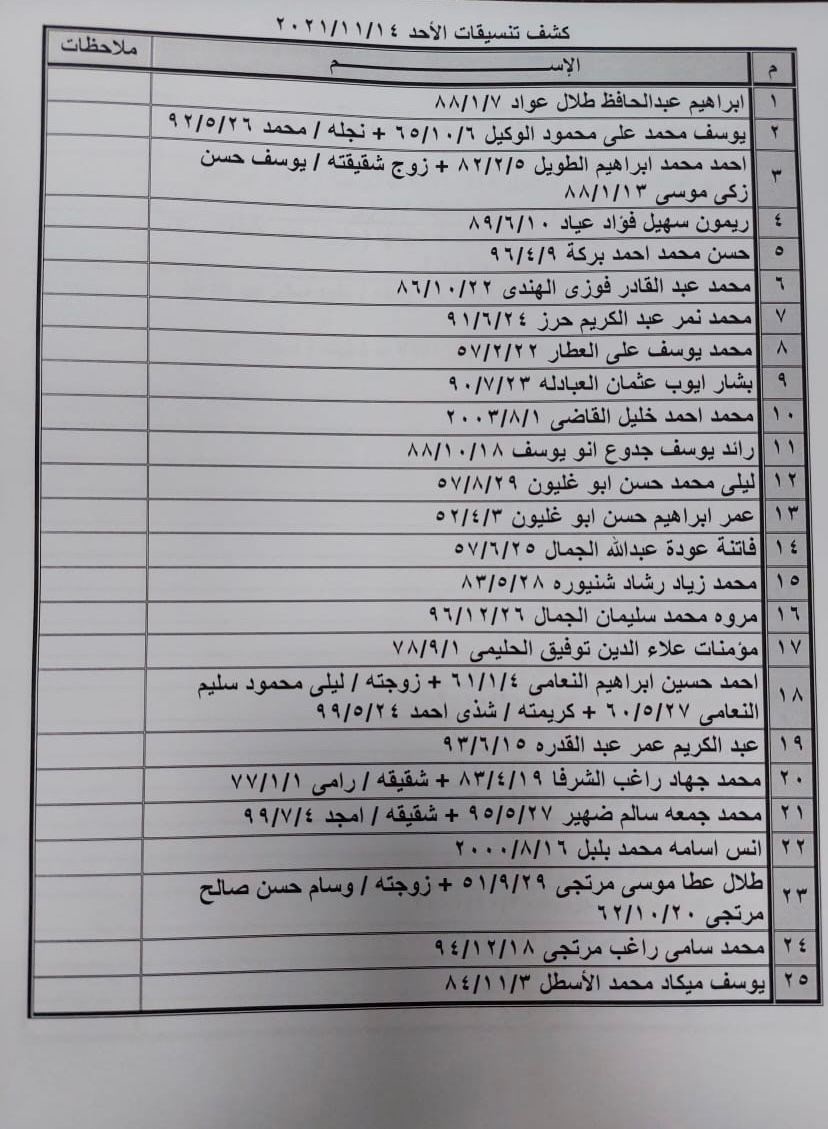 كشف تنسيقات الأحد ٢٠٢١/١١/١٤
م الإســـــــم ملاحظات
١ ابراهيم عبدالحافظ طلال عواد ٨٨/١/٧
٢ يوسف محمد على محمود الوكيل ٦٥/١٠/٦ + نجله / محمد ٩٢/٥/٢٦
٣ احمد محمد ابراهيم الطويل ٨٢/٢/٥ + زوج شقيقته / يوسف حسن
زكى موسى ٨٨/١/١٣
٤ ريمون سهيل فؤاد عياد ٨٩/٦/١٠
٥ حسن محمد احمد بركة ٩٦/٤/٩
٦ محمد عبد القادر فوزى الهندى ٨٦/١٠/٢٢
٧ محمد نمر عبد الكريم حرز ٩١/٦/٢٤
٨ محمد يوسف على العطار ٥٧/٢/٢٢
٩ بشار ايوب عثمان العبادله ٩٠/٧/٢٣
١٠ محمد احمد خليل القاضى ٢٠٠٣/٨/١
١١ رائد يوسف جدوع انو يوسف ٨٨/١٠/١٨
١٢ ليلى محمد حسن ابو غليون ٥٧/٨/٢٩
١٣ عمر ابراهيم حسن ابو غليون ٥٢/٤/٣
١٤ فاتنة عودة عبدالله الجمال ٥٧/٦/٢٥
١٥ محمد زياد رشاد شنيوره ٨٣/٥/٢٨
١٦ مروه محمد سليمان الجمال ٩٦/١٢/٢٦
١٧ مؤمنات علاء الدين توفيق الحليمى ٧٨/٩/١
١٨ احمد حسين ابراهيم النعامى ٦١/١/٤ + زوجته / ليلى محمود سليم
النعامى ٦٠/٥/٢٧ + كريمته / شذى احمد ٩٩/٥/٢٤
١٩ عبد الكريم عمر عبد القدره ٩٣/٦/١٥
٢٠ محمد جهاد راغب الشرفا ٨٣/٤/١٩ + شقيقه / رامى ٧٧/١/١
٢١ محمد جمعه سالم ضهير ٩٥/٥/٢٧ + شقيقه / امجد ٩٩/٧/٤
٢٢ انس اسامه محمد بلبل ٢٠٠٠/٨/١٦
٢٣ طلال عطا موسى مرتجى ٥١/٩/٢٩ + زوجته / وسام حسن صالح
مرتجى ٦٢/١٠/٢٠
٢٤ محمد سامى راغب مرتجى ٩٤/١٢/١٨
٢٥ يوسف ميكاد محمد الأسطل ٨٤/١١/٣